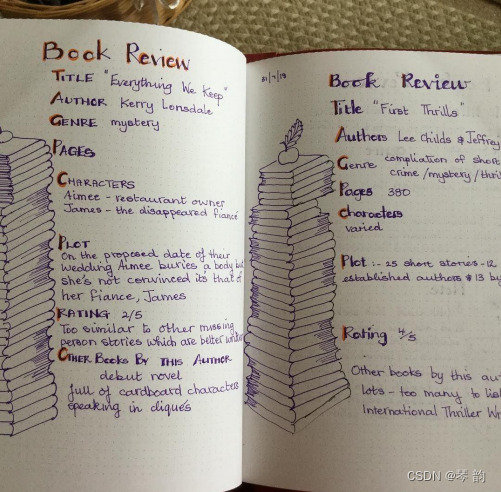 Book Review
TITLE "Everything We Keep"
AUTHOR Kerry Lonsdale
GENRE mystery
PAGES
CHARACTERS
Aimee - restaurant owner
James - the disappeared fiancé
PLOT
On the proposed date of their
wedding Aimee buries a body but
she's not convinced its that of
her fiance, James
RATING 2/5
Too similar to other missing
person stories which are better written
OTHER BOOKS BY THIS AUTHOR
debut novel
full of cardboard characters
speaking in cliqués
31/7/19
Book Review
Title "First Thrills"
Authors Lee Childs & Jeffrey
Genre compliation of short
crime/mystery/thri
Pages 380
Characters
varied
Plot :- 25 short stories - 12
established authors & 13 by
Rating 4/5
Other books by this au
lots - too many to lis
International Thriller Wr
CSDN @琴 韵